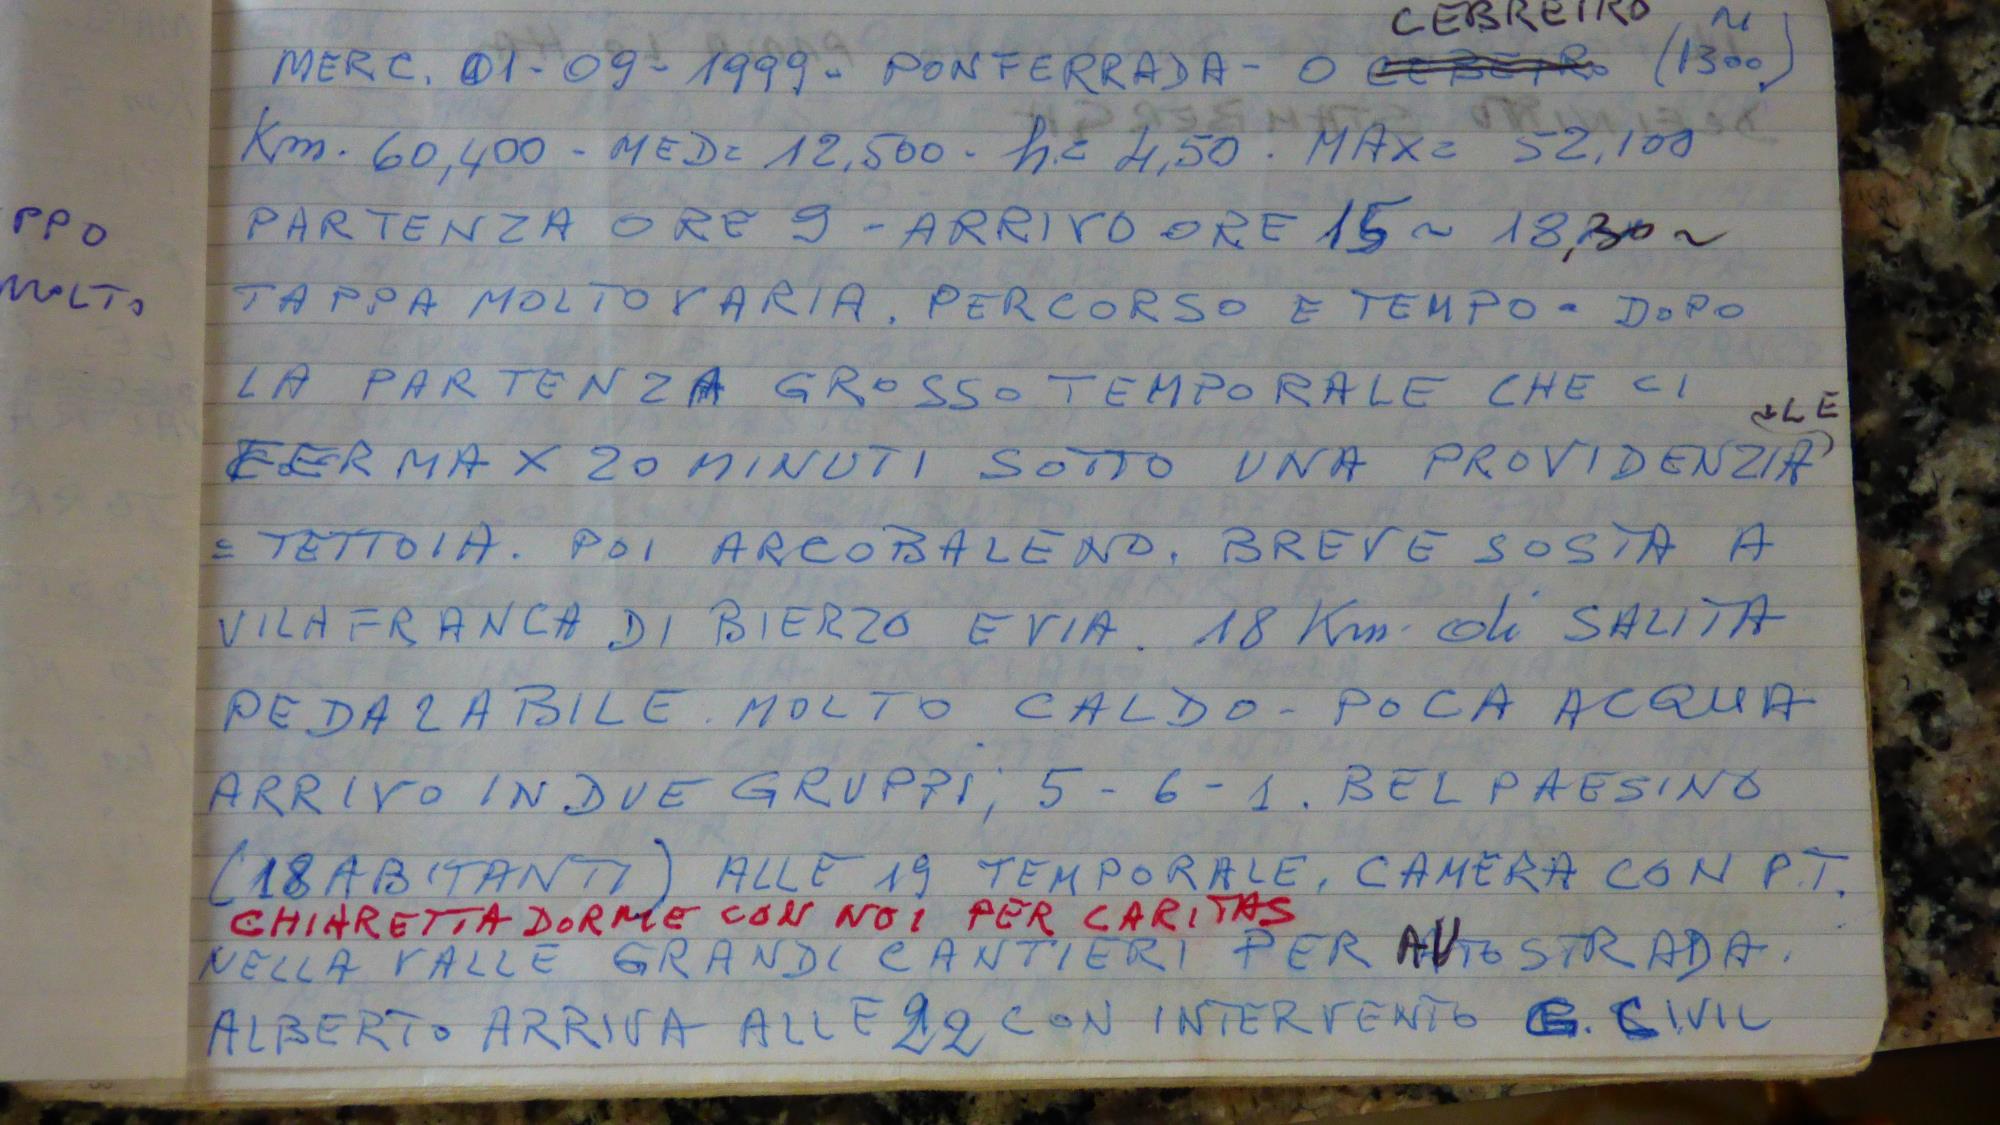 CEBREIRO m
MERC. 01-09-1999- PONFERRADA- O CEBEIRO (1300)
Km. 60,400 - MED= 12,500 - h.= 4,50. MAX= 52,100
PPO
PARTENZA ORE 9 - ARRIVO ORE 15 ~ 18,30 ~
MOLTO
TAPPA MOLTO VARIA. PERCORSO E TEMPO - DOPO
LA PARTENZA GROSSO TEMPORALE CHE CI
LE
FERMA X 20 MINUTI SOTTO UNA PROVIDENZIA
= TETTOIA. POI ARCOBALENO. BREVE SOSTA A
VILAFRANCA DI BIERZO E VIA. 18 Km. di SALITA
PEDALABILE. MOLTO CALDO - POCA ACQUA
ARRIVO IN DUE GRUPPI; 5 - 6 - 1. BEL PAESINO
(18 ABITANTI) ALLE 19 TEMPORALE. CAMERA CON P.T.
CHIARETTA DORME CON NOI PER CARITAS
NELLA VALLE GRANDI CANTIERI PER AUTOSTRADA.
ALBERTO ARRIVA ALLE 22 CON INTERVENTO G. CIVIL